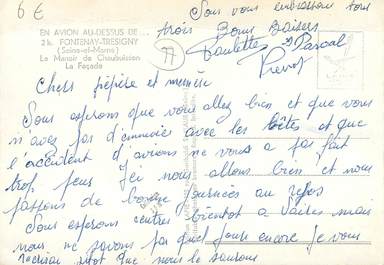 6 €
Sous vous embrassons tous
trois Bons Baisers
Paulette et Pascal
Prevot
EN AVION AU-DESSUS DE ...
2 b. FONTENAY-TRESIGNY
(Seine-et-Marne)
Le Manoir de Chaubuisson
La Façade
77
Chers pépère et mémère
Nous esperons que vous allez bien et que vous
n'avez pas d'ennuies avec les bêtes et que
l'accident d'avions ne vous a pas fait
trop peur Ici nous allons bien et nous
passons de bonne journées au repos
Nous esperons rentrer bientot a mais
nous ne savons pas quel jour encore je vous
plutot que nous le saurons